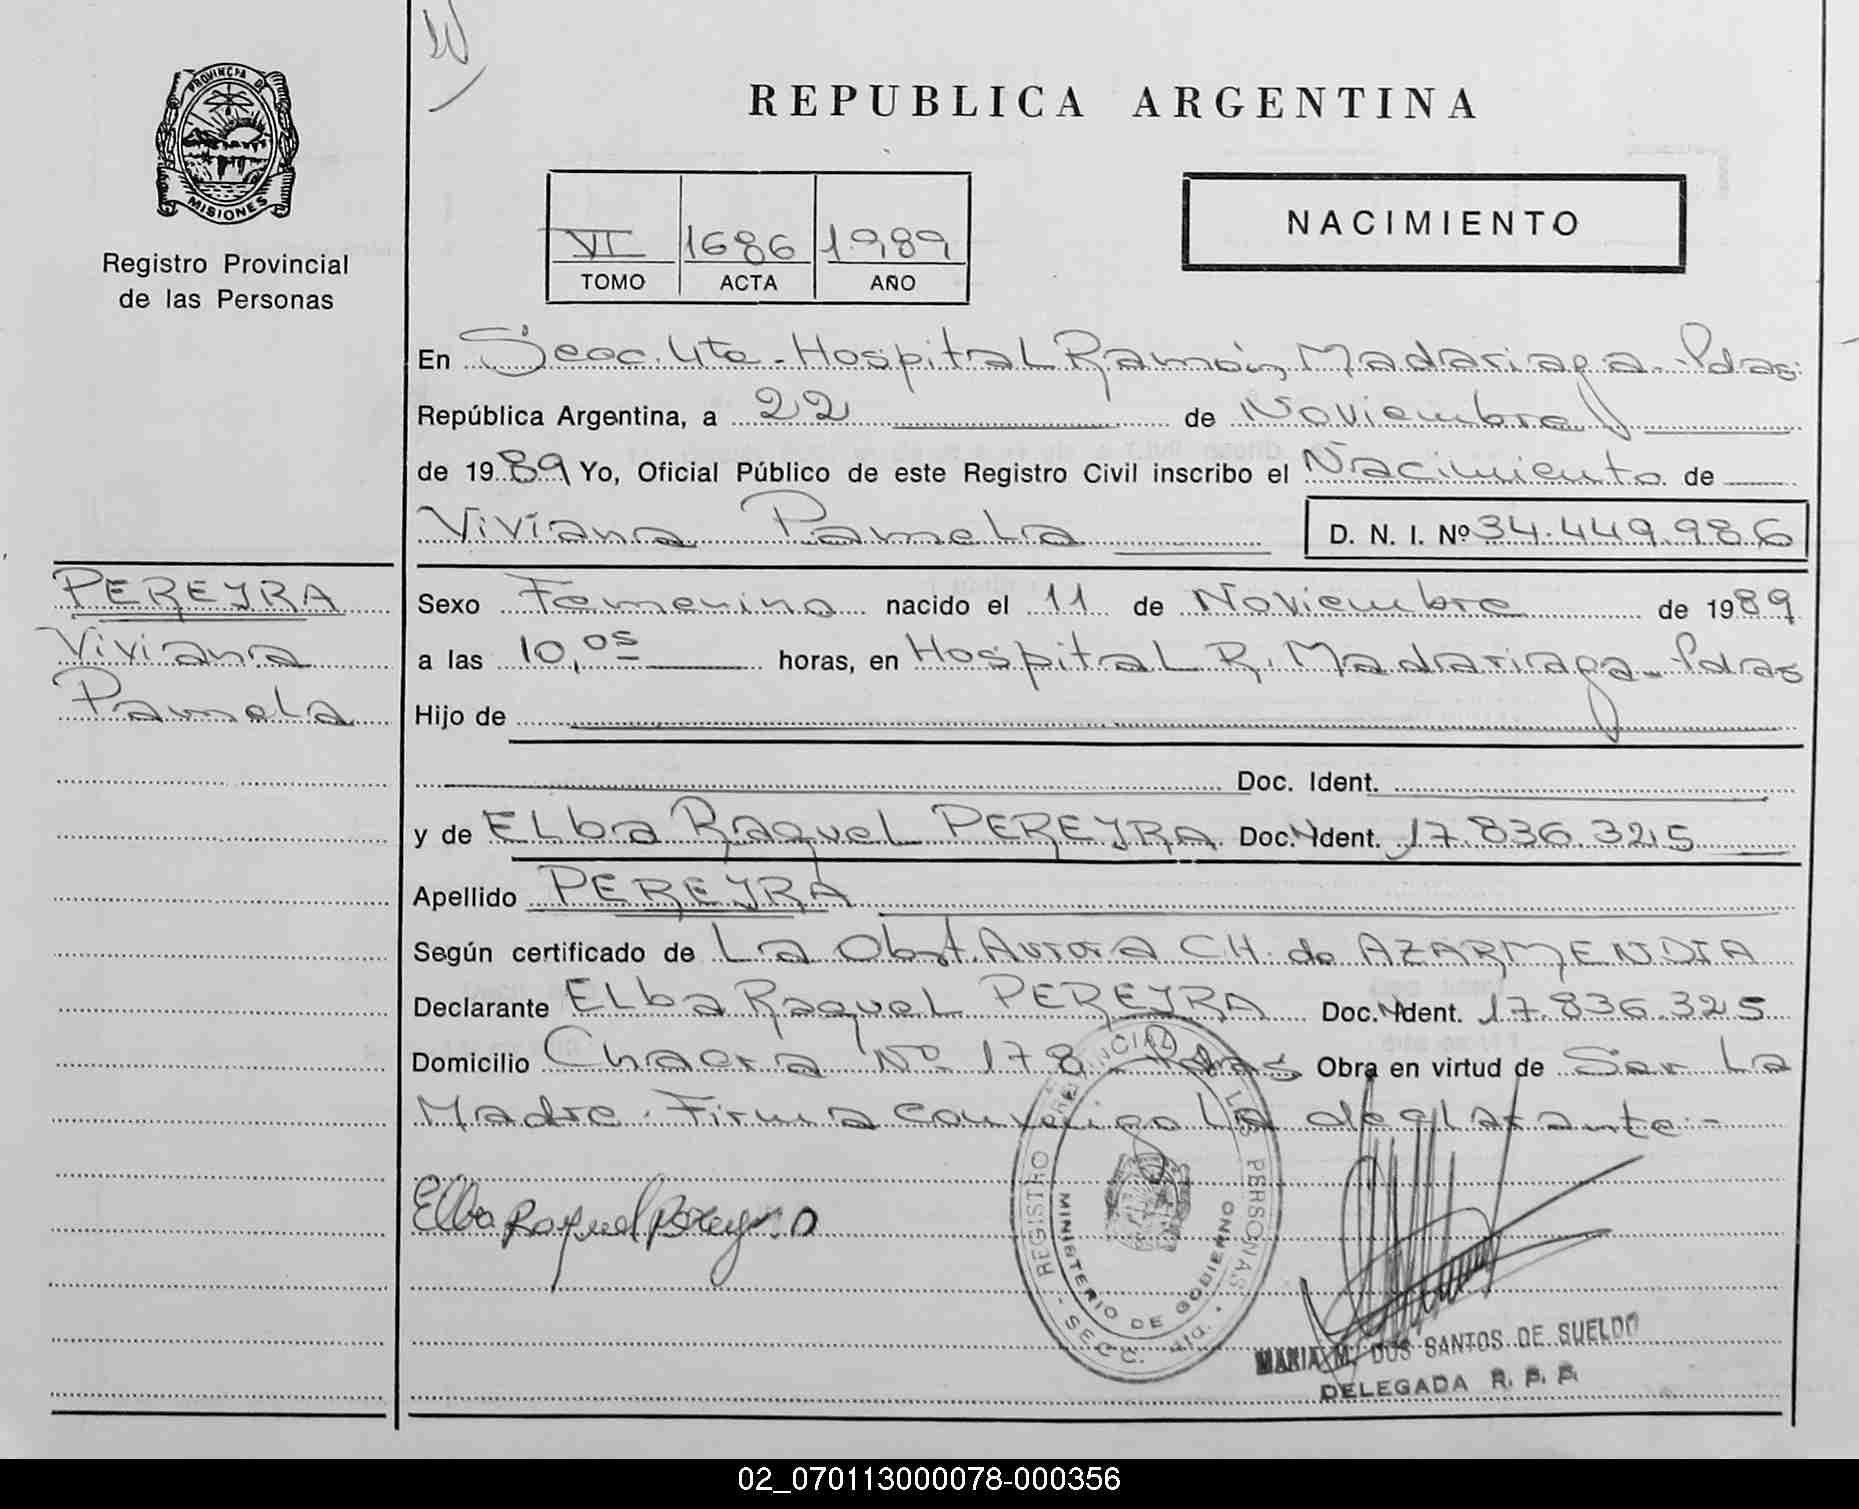 PROVINCIA DE
MISIONES
Registro Provincial
de las Personas
REPUBLICA ARGENTINA
VI 1686 1989
TOMO ACTA AÑO
NACIMIENTO
En Secc. 4ta - Hospital Ramón Madariaga - Pdas.
República Argentina, a 22 de Noviembre
de 1989 Yo, Oficial Público de este Registro Civil inscribo el Nacimiento de
Viviana Pamela D. N. I. Nº 34.449.986
PEREYRA
Viviana
Pamela
Sexo Femenino nacido el 11 de Noviembre de 1989
a las 10,05 horas, en Hospital R. Madariaga - Pdas
Hijo de
Doc. Ident.
y de Elba Raquel PEREYRA Doc. Ident. 17.836.325
Apellido PEREYRA
Según certificado de La Obst. Aurora CH. de AZARMENDIA
Declarante Elba Raquel PEREYRA Doc. Ident. 17.836.325
Domicilio Chacra Nº 178 Pdas Obra en virtud de Ser La
Madre. Firma conmigo La declarante -
Elba Raquel Pereyra
REGISTRO PROVINCIAL LAS PERSONAS
MINISTERIO DE GOBIERNO
- SECC. 4ta. -
MARIA M. DOS SANTOS DE SUELDO
DELEGADA R. P. P.
02_070113000078-000356